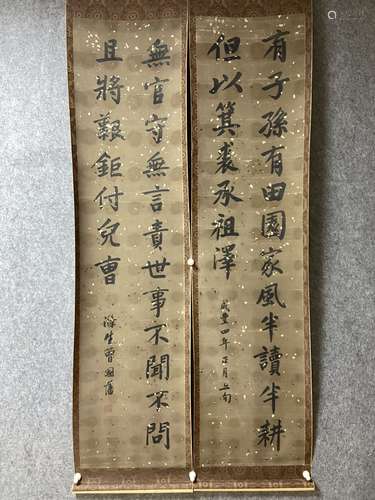 有子孫有田園家風半讀半耕
但以箕裘承祖澤
咸豊四年正月上旬
無官守無言責世事不聞不問
且將艱鉅付兒曹
滌生曾國藩